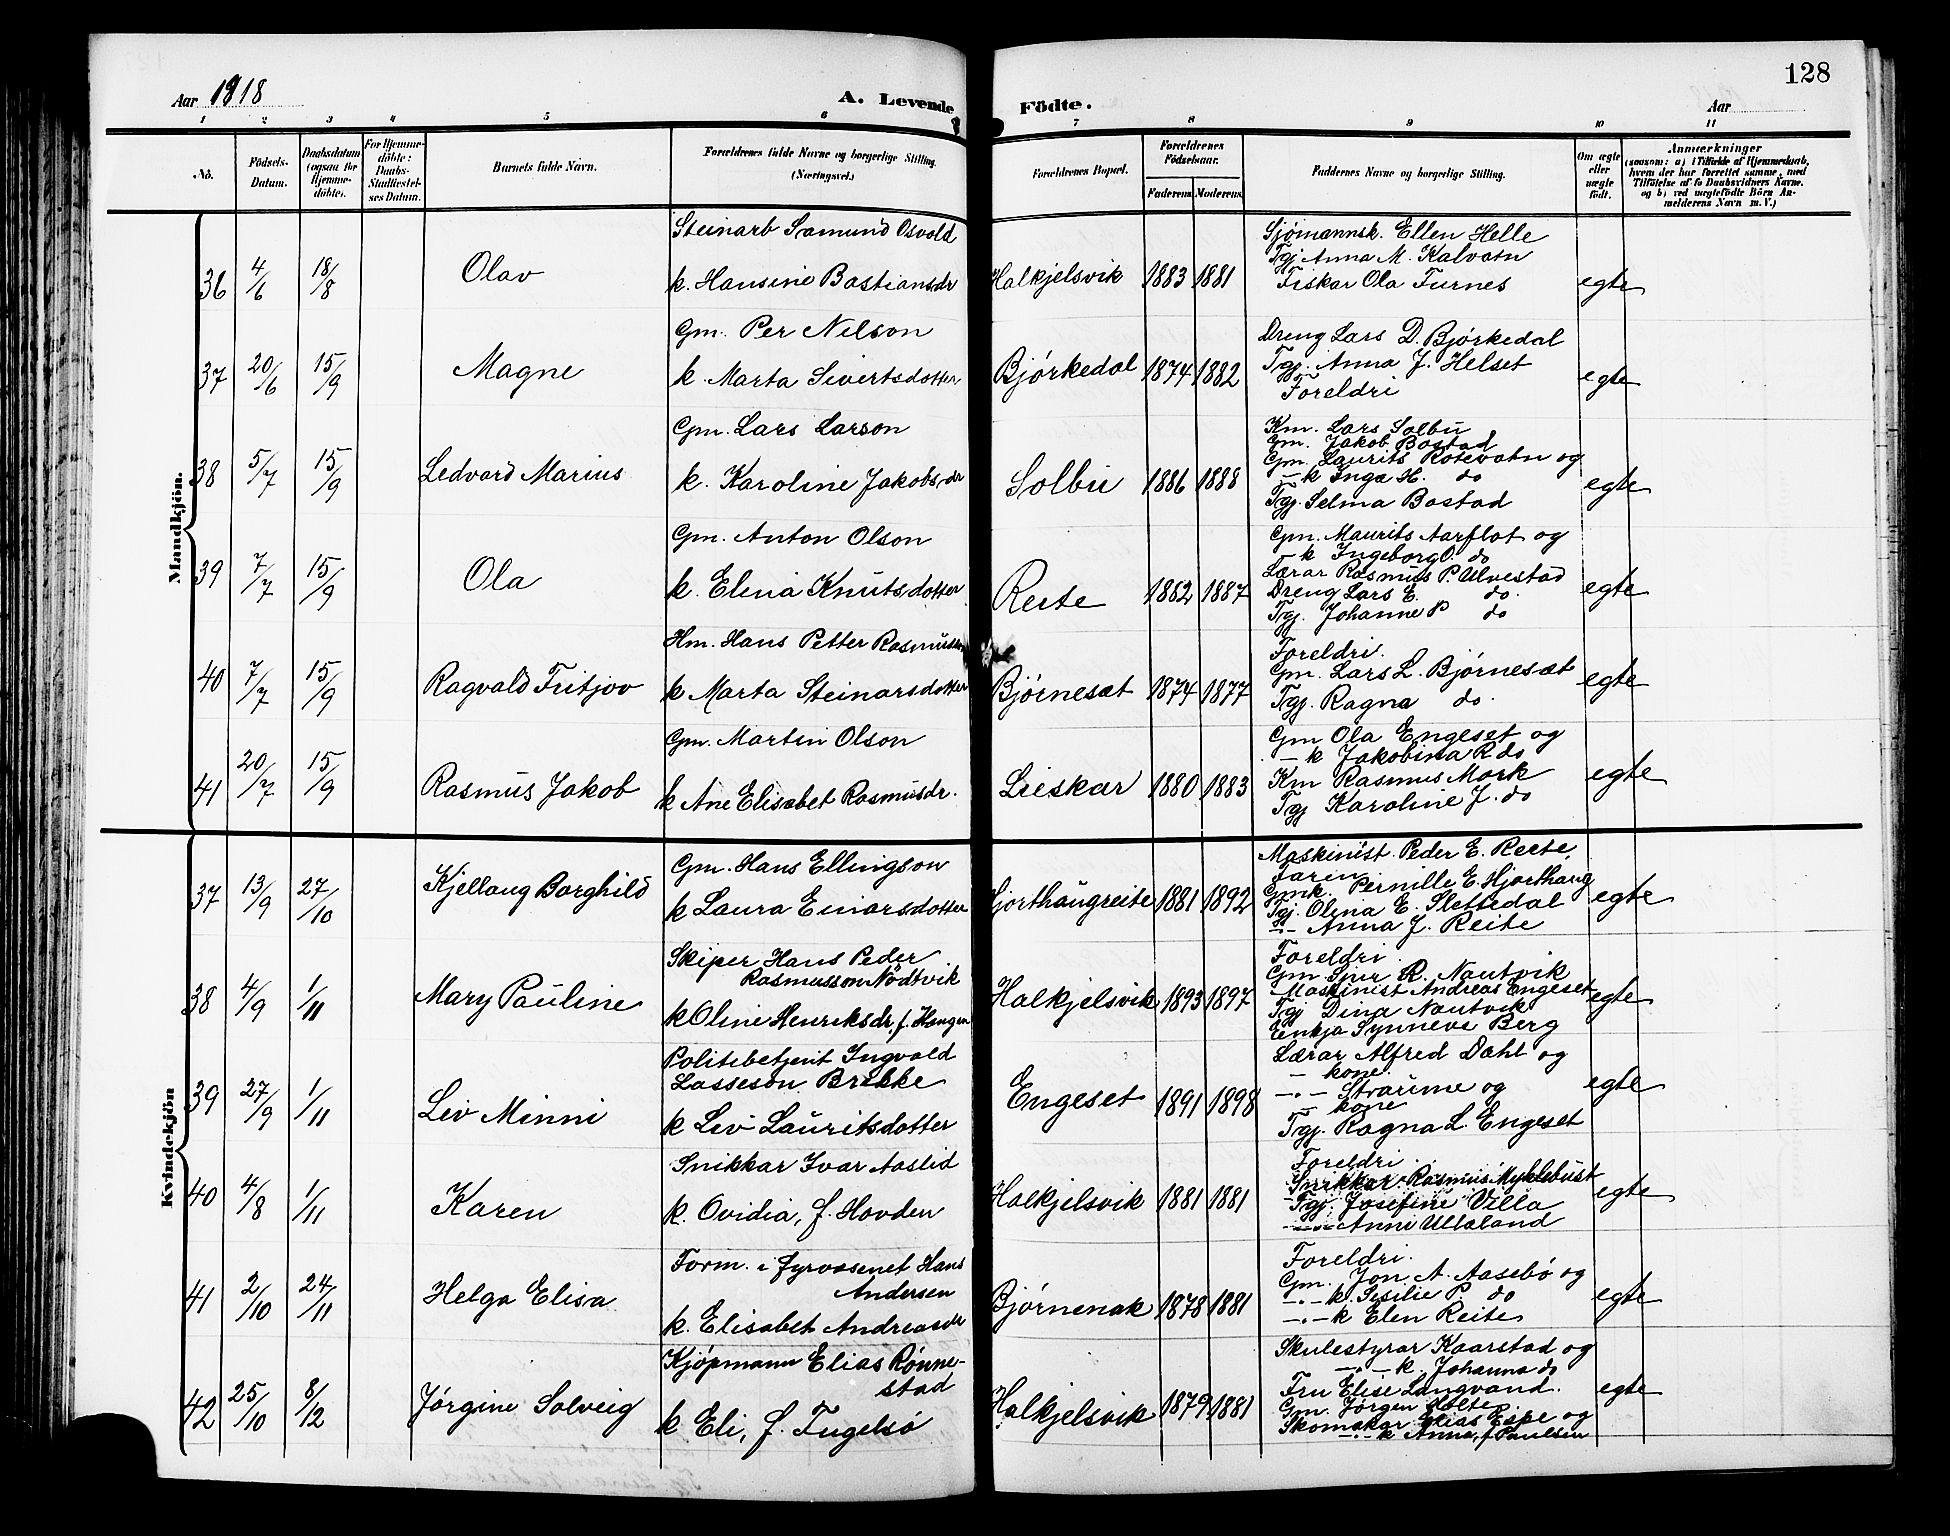 128
Aar 1918
A. Levende Födte.
Aar
1 2 3 4 5 6 7 8 9 10 11
No.
Födsels-Datum.
Daabsdatum (ogsaa for Hjemme-döbte).
For Hjemme-döbte: Daabs-Stadfæstel-ses Datum.
Barnets fulde Navn.
Forældrenes fulde Navne og borgerlige Stilling. (Næringsvei.)
Forældrenes Bopæl.
Forældrenes Födselsaar.
Faderens. Moderens.
Faddernes Navne og borgerlige Stilling.
Om ægte eller uægte födt.
Anmærkninger
(saasom: a) i Tilfælde af Hjemmedaab,
hvem der har forrettet samme, med
Tilföielse af to Daabsvidners Navne,
og b) ved uægtefödte Börn An-
melderens Navn m. V.)
Mandkjön.
36 4/6 18/8 Olav
Steinarb Sæmund Osvold
k. Hansine Bastiansdr
Halkjelsvik 1883 1881
Sjømannsk. Ellen Helle
Tgj Anna M. Kalvatn
Fiskar Ola Furnes
egte
37 20/6 15/9 Magne
Gm. Per Nilson
k. Marta Sivertsdotter
Bjørkedal 1874 1882
Dreng Lars D. Bjørkedal
Tgj. Anna J. Helset
Foreldri
egte
38 5/7 15/9 Ledvard Marius
Gm. Lars Larson
k. Karoline Jakobsdr
Solbu 1886 1888
Km. Lars Solbu
Gm. Jakob Bostad
Gm. Laurits Rotevatn og
— k Inga H. do
Tgj. Selma Bostad
egte
39 7/7 15/9 Ola
Gm. Anton Olson
k. Elena Knutsdotter
Reite 1882 1887
Gm. Maurits Aarflot og
— k Ingeborg O. do
Lærar Rasmus P. Ulvestad
Dreng Lars E. do
Tgj. Johanne P do
egte
40 7/7 15/9 Ragvald Fritjov
Hm. Hans Petter Rasmusson
k Marta Steinarsdotter
Bjørnesæt 1874 1877
Foreldri.
Gm. Lars L. Bjørnesæt
Tgj. Ragna do.
egte
41 20/7 15/9 Rasmus Jakob
Gm. Martin Olson
k Ane Elisabet Rasmusdr.
Lieskar 1880 1883
Gm Ola Engeset og
— k Jakobina R do
Km Rasmus Mork
Tgj Karoline J. do
egte
Kvindekjön
37 13/9 27/10 Kjellaug Borghild
Gm. Hans Ellingson
k Laura Einarsdotter
Hjorthaugreite 1881 1892
Maskinist Peder E. Reite,
Faren
Gmk. Pernille E. Hjorthaug
Tgj. Olina E. Slettedal
—.— Anna J. Reite
egte
38 4/9 1/11 Mary Pauline
Skiper Hans Peder
Rasmusson Nödtvik
k Oline Henriksdr, f. Haugen
Halkjelsvik 1893 1897
Foreldri
Gm. Sjur R. Nautvik
Maskinist Andreas Engeset
Tgj Dina Nautvik
Enkja Synneve Berg
egte
39 27/9 1/11 Liv Minni
Politibetjent Ingvald
Lasseson Brekke
k Liv Lauritsdotter
Engeset 1891 1898
Lærar Alfred Dahl og
— kone
—.— Straume og
— kone
Tgj. Ragna L. Engeset
egte
40 4/8 1/11 Karen
Snikkar Ivar Aaslid
k. Ovidia, f. Hovden
Halkjelsvik 1881 1881
Foreldri.
Snikkar Rasmus Myklebust
Tgj. Josefine Villa
—.— Anne Ullaland
egte
41 2/10 24/11 Helga Elisa
Form. i fyrvæsenet Hans
Andersen
k. Elisabet Andreasdr
Bjørnenak 1878 1881
Foreldri.
Gm. Jon A. Aasebø og
—.— k. Sesilie P. do
—.— k Elen Reite
egte
42 25/10 8/12 Jørgine Solveig
Kjøpmann Elias Rønne-
stad
k Eli, f. Fugelsö
Halkjelsvik 1879 1881
Skulestyrar Kaarstad og
—.— k. Johanna do
Fru Elise Langvand.
Gm. Jørgen Holte
Skomakar Elias Espe og
—.— k Anna, f Paulsen
egte